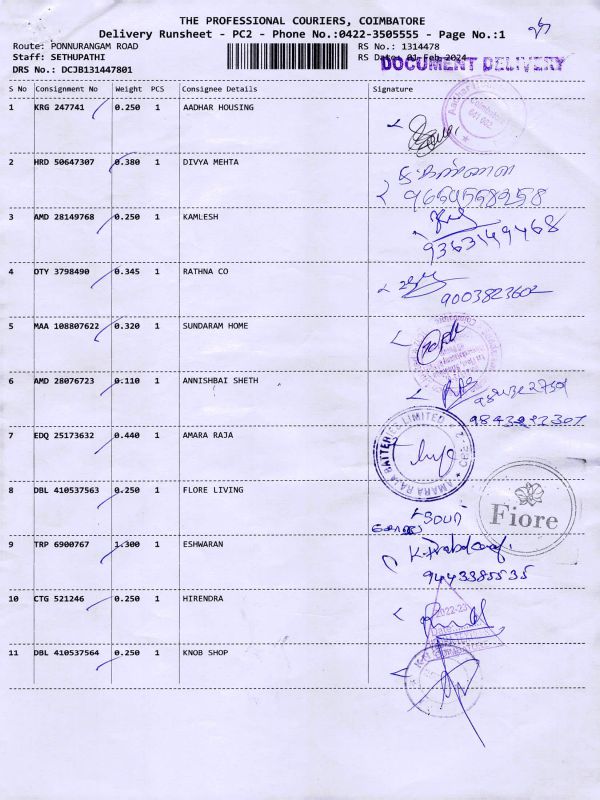 THE PROFESSIONAL COURIERS, COIMBATORE
Delivery Runsheet - PC2 - Phone No.:0422-3505555 - Page No.:1
Route: PONNURANGAM ROAD RS No.: 1314478
Staff: SETHUPATHI RS Date: 01 Feb 2024
DOCUMENT DELIVERY
DRS No.: DCJB131447801
S No Consignment No Weight PCS Consignee Details Signature
1 KRG 247741 0.250 1 AADHAR HOUSING
2 HRD 50647307 0.380 1 DIVYA MEHTA
3 AMD 28149768 0.250 1 KAMLESH
9363149468
4 OTY 3798490 0.345 1 RATHNA CO
9003823602
5 MAA 108807622 0.320 1 SUNDARAM HOME
6 AMD 28076723 0.110 1 ANNISHBAI SHETH
7 EDQ 25173632 0.440 1 AMARA RAJA
AMARA RAJA BATTERIES LIMITED
8 DBL 410537563 0.250 1 FLORE LIVING
Fiore
9 TRP 6900767 1.300 1 ESHWARAN
9443385535
10 CTG 521246 0.250 1 HIRENDRA
2022-23
11 DBL 410537564 0.250 1 KNOB SHOP